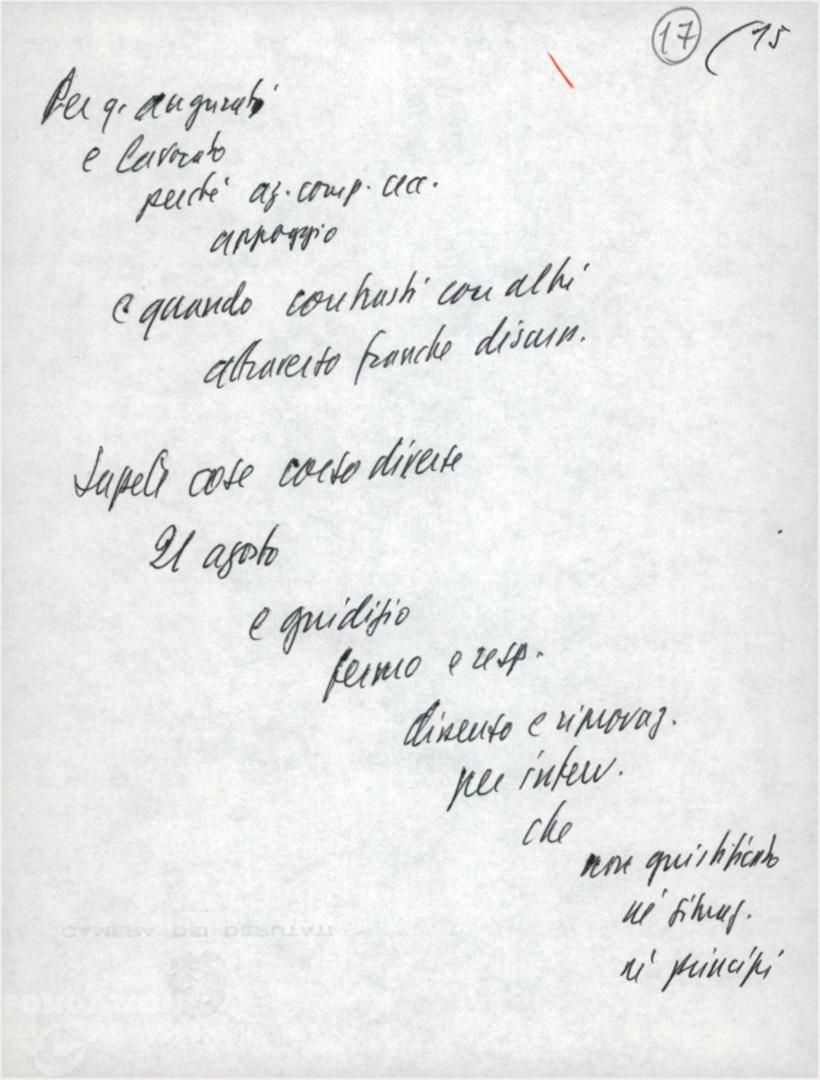 17 ( 15
Per q. augurati
e lavorato
perché az. comp. cec.
appoggio
e quando contrasti con altri
attraverso franche discuss.
Sapete cose corso diverso
21 agosto
e giudizio
fermo e resp.
dissenso e riprovaz.
per interv.
che
non giustificato
né situaz.
né principi
CAMERA DEI DEPUTATI
FONDAZIONE